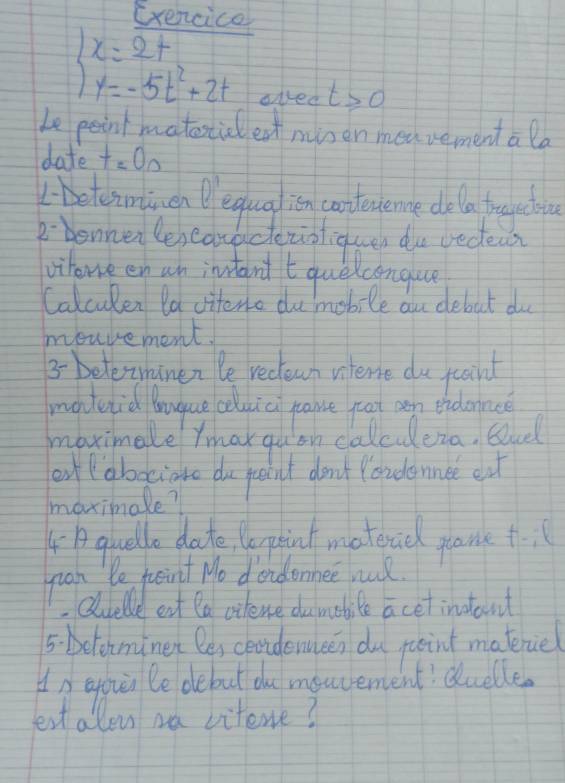 Exercice
{x = 2t
{y = -5t² + 2t avec t ≥ 0
Le point materiel est mis en mouvement à la
date t = 0s
1-Determiner l'equation cartesienne de la trajectoire
2-Donner les caractéristiques du vecteur
vitesse en un instant t quelconque.
Calculer la vitesse du mobile au debut du
mouvement.
3-Determiner le vecteur vitesse du point
materiel lorsque celui ci passe par son ordonneé
maximale Ymax qu'on calculera. Quel
est l'abscisse du point dont l'ordonneé est
maximale?
4- A quelle date, le point materiel passe t-il
par le point Mo d'ordonneé nul.
- Quelle est la vitesse du mobile à cet instant
5-Determiner les coordonneés du point materiel
1s après le debut du mouvement! Quelle
est alors sa vitesse?